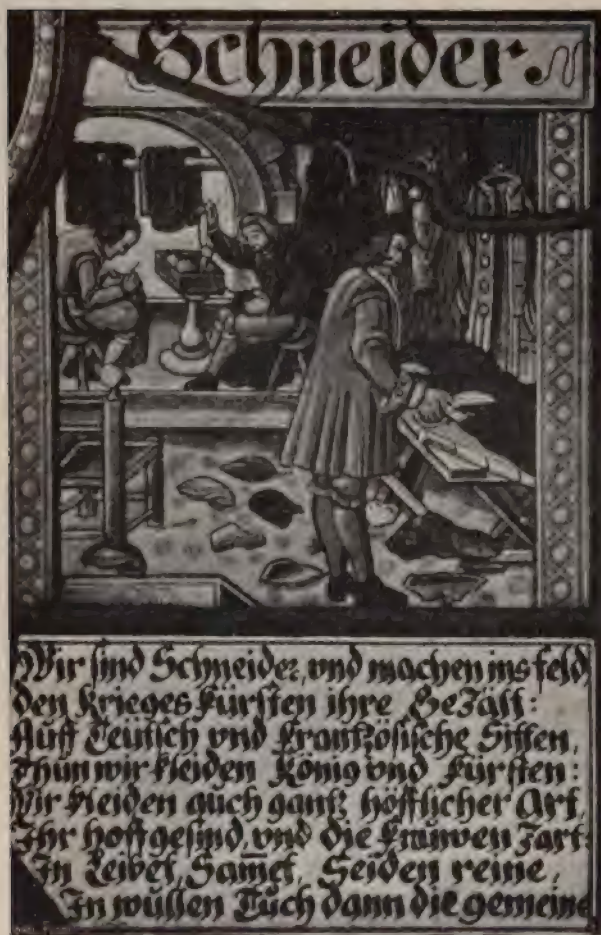 Schneider.
Wir sind Schneider, vnd machen ins feld
den Krieges Fürsten ihre GeZält:
Auff Teütsch vnd Frantzösische Sitten,
Thun wir kleiden König vnd Fürsten:
Wir kleiden auch gantz höfflicher Art,
Ihr hoffgesind, vnd die Frauwen Zart:
In Samet, Seiden reine,
In wüllen Tuch dann die gemeine